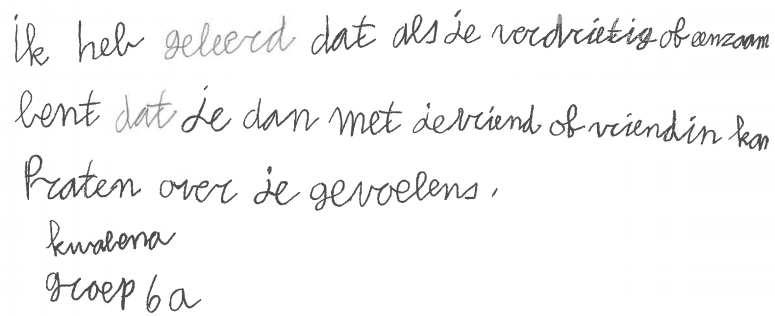 ik heb geleerd dat als je verdrietig of eenzaam
bent dat je dan met je vriend of vriendin kan
Praten over je gevoelens.
kwabena
groep 6a